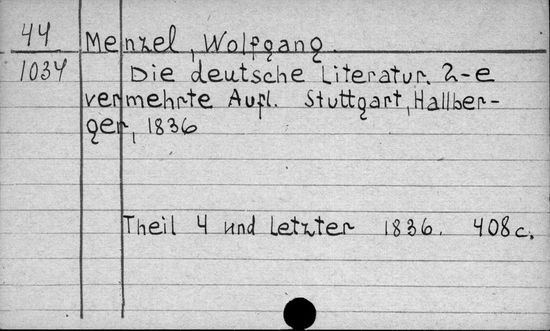 44 Menzel, Wolfgang.
1034 Die deutsche Literatur. 2-e
vermehrte Aufl. Stuttgart, Hallber-
ger, 1836
Theil 4 und letzter 1836. 408 c.